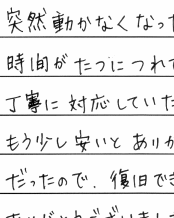 突然動かなくなっ
時間がたつにつれて
丁寧に対応していた
もう少し安いとありが
だったので、復旧でき